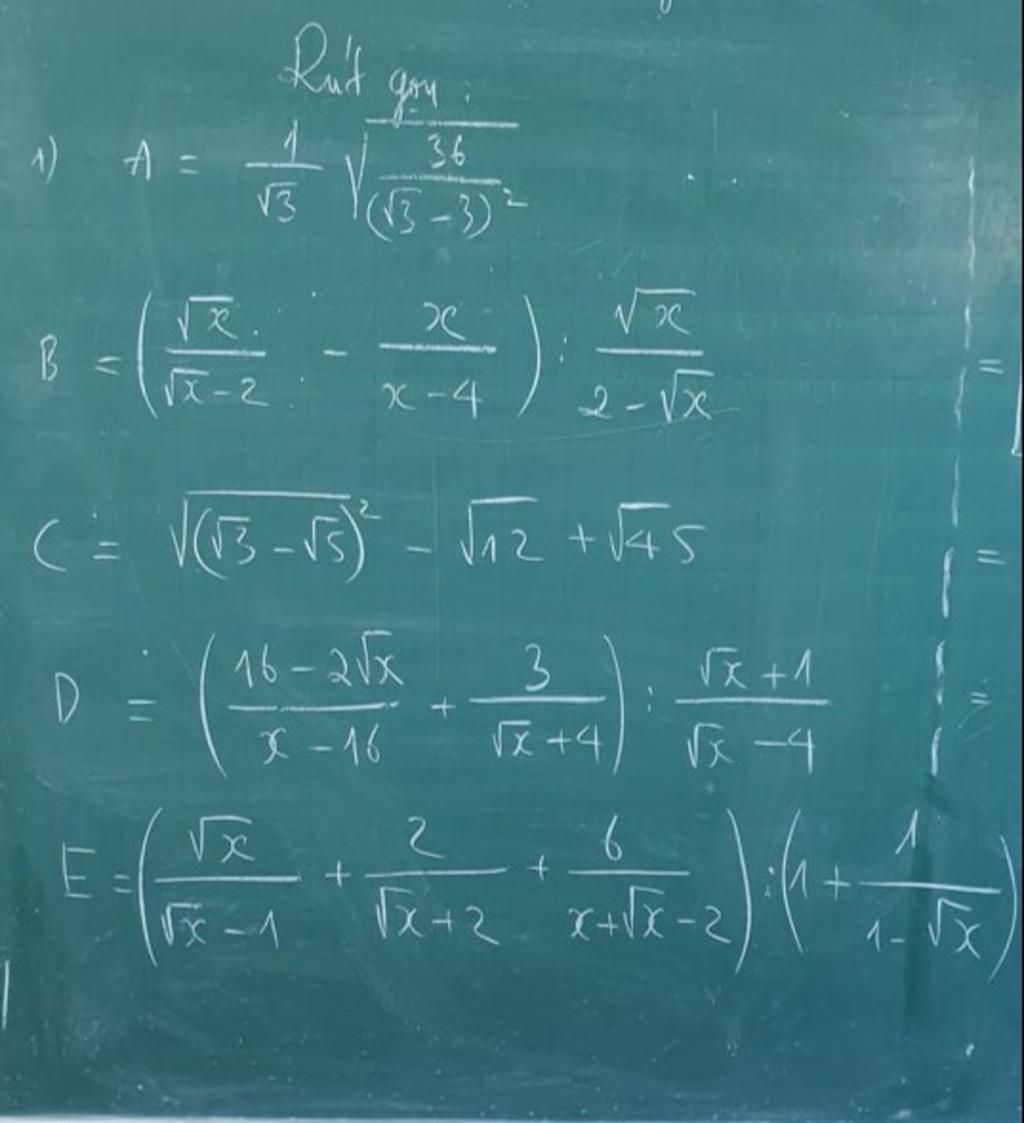 Rút gọn :
1) A = \frac{1}{\sqrt{3}} \sqrt{\frac{36}{(\sqrt{3}-3)^2}}
B = \left(\frac{\sqrt{x}}{\sqrt{x}-2} - \frac{x}{x-4}\right) : \frac{\sqrt{x}}{2-\sqrt{x}} =
C = \sqrt{(\sqrt{3}-\sqrt{5})^2} - \sqrt{12} + \sqrt{45} =
D = \left(\frac{16-2\sqrt{x}}{x-16} + \frac{3}{\sqrt{x}+4}\right) : \frac{\sqrt{x}+1}{\sqrt{x}-4} =
E = \left(\frac{\sqrt{x}}{\sqrt{x}-1} + \frac{2}{\sqrt{x}+2} + \frac{6}{x+\sqrt{x}-2}\right) : \left(1 + \frac{1}{1-\sqrt{x}}\right)